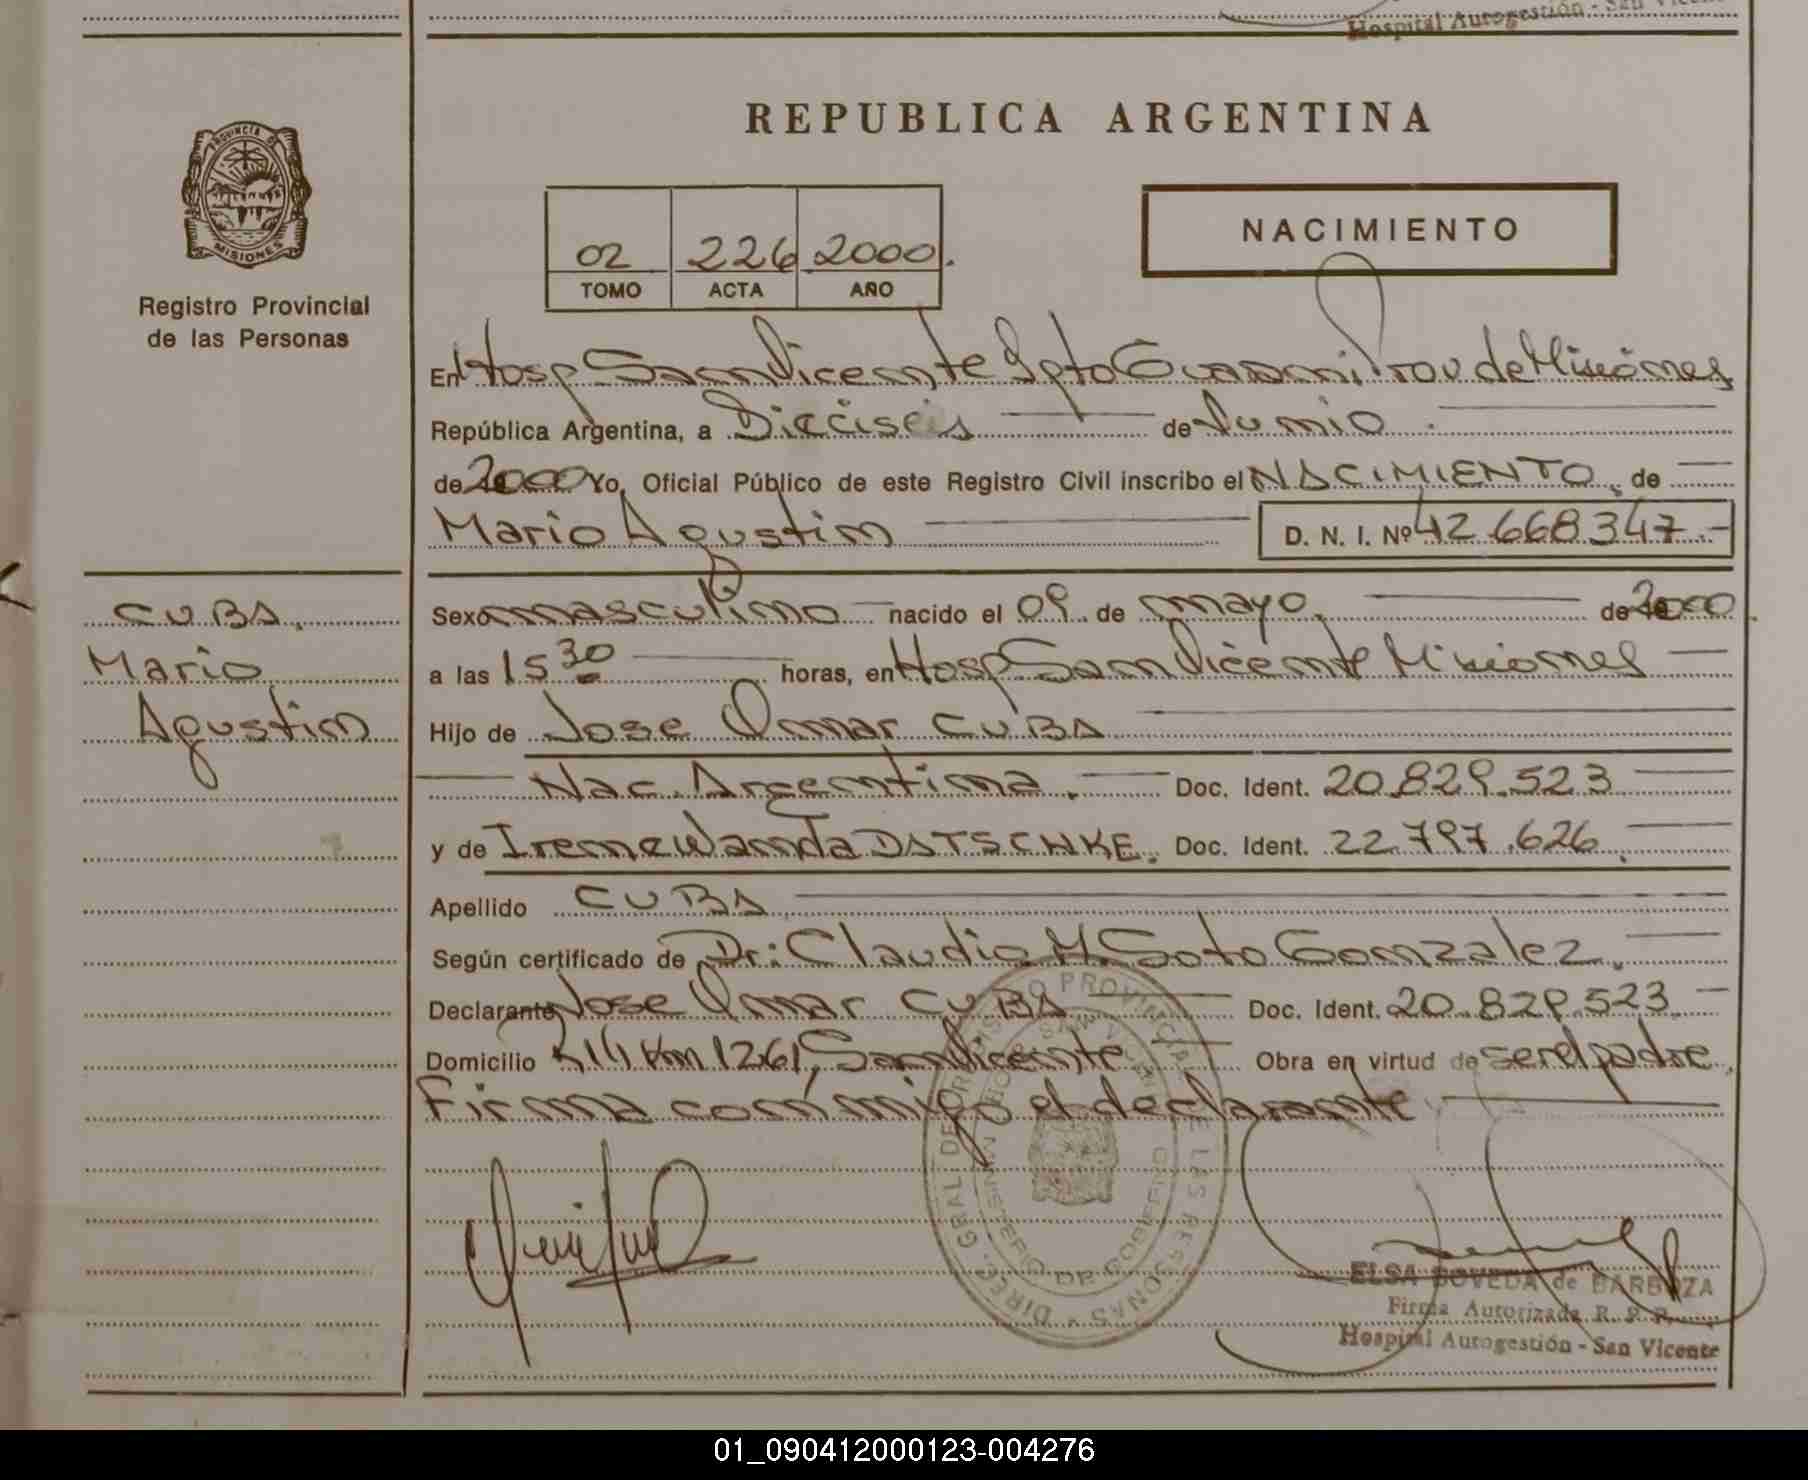 Hospital Autogestión - San Vicente
REPUBLICA ARGENTINA
PROVINCIA DE
MISIONES
Registro Provincial
de las Personas
02 226 2000.
TOMO ACTA AÑO
NACIMIENTO
En Hosp San Vicente Dpto Guarani Prov de Misiones
República Argentina, a Dieciseis de Junio
de 2000 Yo, Oficial Público de este Registro Civil inscribo el NACIMIENTO, de
Mario Agustin D. N. I. Nº 42.668.347.-
CUBA,
Mario
Agustin
Sexo masculino nacido el 09 de mayo, de 2000.
a las 15 30 horas, en Hosp San Vicente Misiones
Hijo de Jose Omar CUBA
Nac. Argentina. Doc. Ident. 20.829.523
y de Irene Wanda DATSCHKE. Doc. Ident. 22.797.626.
Apellido CUBA
Según certificado de Dr: Claudio M. Soto Gonzalez.
Declarante Jose Omar CUBA Doc. Ident. 20.829.523.
Domicilio Km 1261, San Vicente Obra en virtud de ser el padre.
Firma conmigo el declarante.
DIREC. GRAL DEL REGISTRO PROVINCIAL DE LAS PERSONAS
MINISTERIO DE GOBIERNO
ELSA BOVEDA de BARBOZA
Firma Autorizada R. P. P.
Hospital Autogestión - San Vicente
01_090412000123-004276